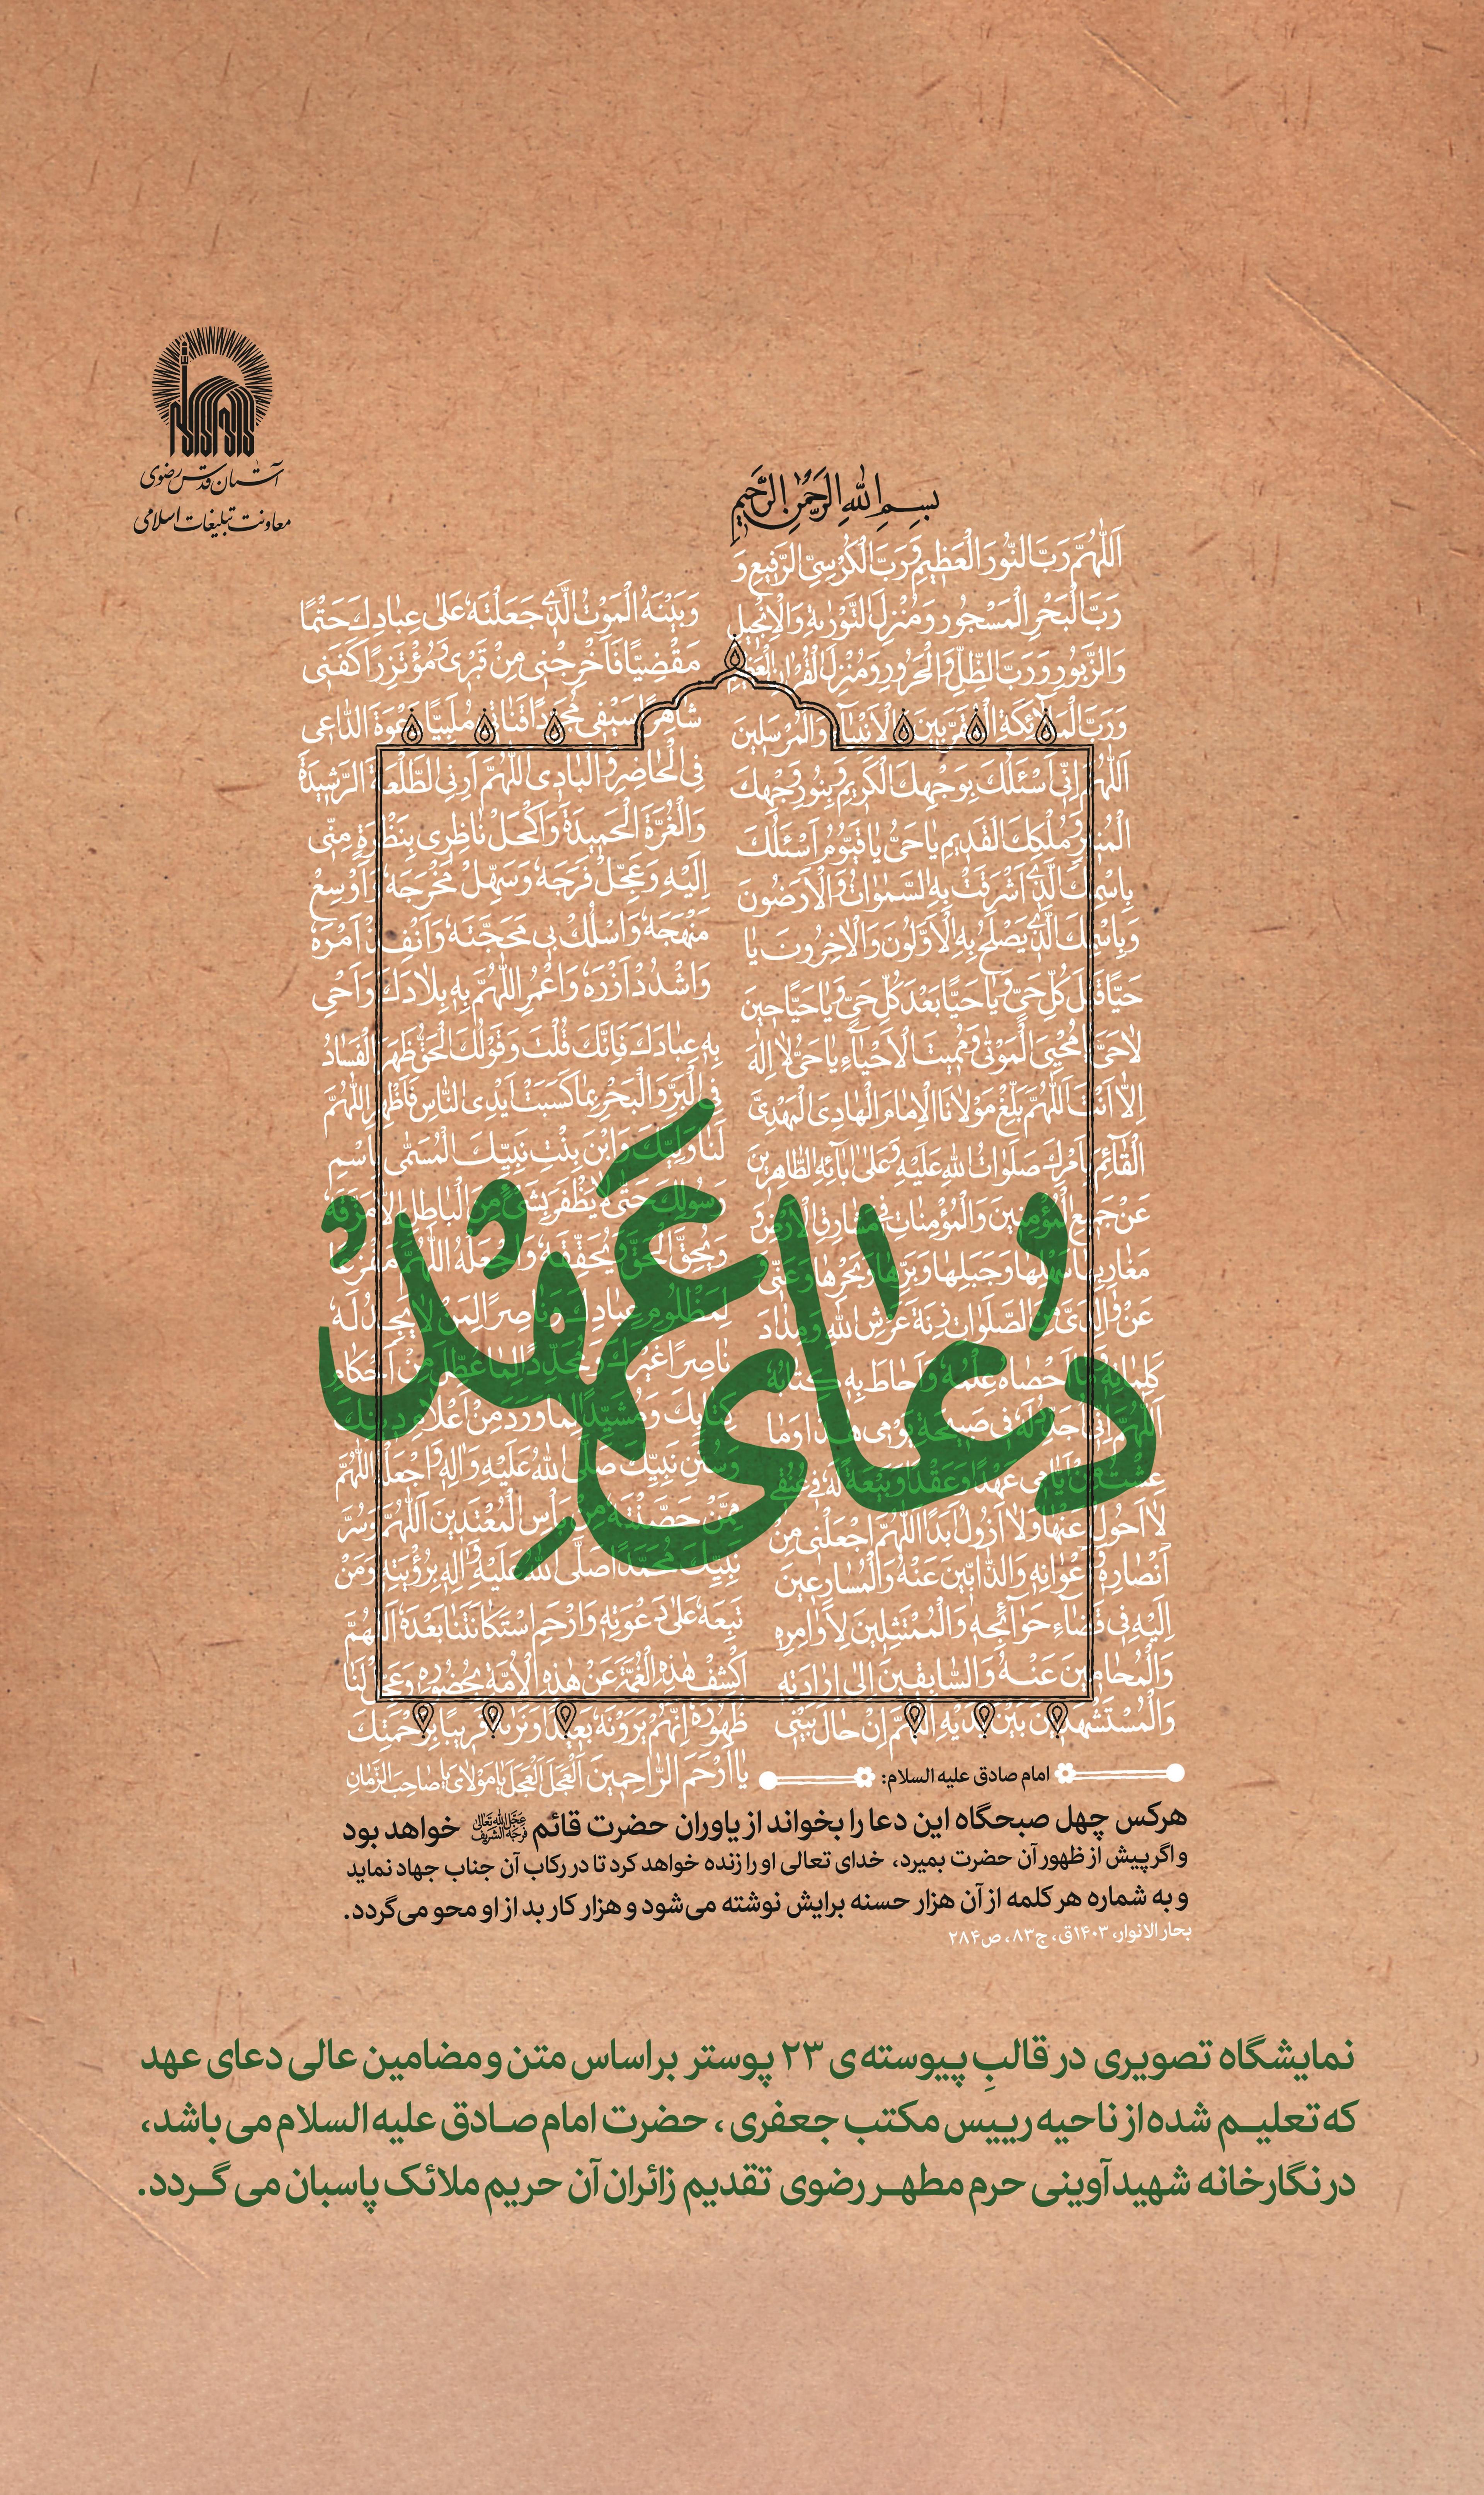 آستان قدس رضوی
معاونت تبلیغات اسلامی
بسم الله الرحمن الرحیم
اَللّٰهُمَّ رَبَّ النُّورِ الْعَظیمِ وَ رَبَّ الْکُرْسِیِّ الرَّفیعِ وَ
رَبَّ الْبَحْرِ الْمَسْجُورِ وَ مُنْزِلَ التَّوْرٰیةِ وَالْاِنْجیلِ
وَالزَّبُورِ وَ رَبَّ الظِّلِّ وَالْحَرُورِ وَ مُنْزِلَ الْقُرْاٰنِ الْعَظیمِ
وَ رَبَّ الْمَلٰائِکَةِ الْمُقَرَّبینَ وَالْاَنْبِیٰآءِ وَالْمُرْسَلینَ
اَللّٰهُمَّ اِنّی اَسْئَلُکَ بِوَجْهِکَ الْکَریمِ وَ بِنُورِ وَجْهِکَ
الْمُنیرِ وَ مُلْکِکَ الْقَدیمِ یٰا حَیُّ یٰا قَیُّومُ اَسْئَلُکَ
بِاسْمِکَ الَّذی اَشْرَقَتْ بِهِ السَّمٰوٰاتُ وَالْاَرَضُونَ
وَ بِاسْمِکَ الَّذی یَصْلَحُ بِهِ الْاَوَّلُونَ وَالْاٰخِرُونَ یٰا
حَیًّا قَبْلَ کُلِّ حَیٍّ وَ یٰا حَیًّا بَعْدَ کُلِّ حَیٍّ وَ یٰا حَیًّا حینَ
لٰا حَیَّ یٰا مُحْیِیَ الْمَوْتٰی وَ مُمیتَ الْاَحْیٰآءِ یٰا حَیُّ لٰا اِلٰهَ
اِلّٰا اَنْتَ اَللّٰهُمَّ بَلِّغْ مَوْلٰانَا الْاِمٰامَ الْهٰادِیَ الْمَهْدِیَّ
الْقٰآئِمَ بِاَمْرِکَ صَلَوٰاتُ اللهِ عَلَیْهِ وَ عَلٰی اٰبٰآئِهِ الطّٰاهِرینَ
عَنْ جَمیعِ الْمُؤْمِنینَ وَالْمُؤْمِنٰاتِ فی مَشٰارِقِ الْاَرْضِ وَ
مَغٰارِبِهٰا سَهْلِهٰا وَ جَبَلِهٰا وَ بَرِّهٰا وَ بَحْرِهٰا وَ عَنّی
وَ عَنْ وٰالِدَیَّ مِنَ الصَّلَوٰاتِ زِنَةَ عَرْشِ اللهِ وَ مِدٰادَ
کَلِمٰاتِهِ وَ مٰا اَحْصٰاهُ عِلْمُهُ وَ اَحٰاطَ بِهِ کِتٰابُهُ
اَللّٰهُمَّ اِنّی اُجَدِّدُ لَهُ فی صَبیحَةِ یَوْمی هٰذٰا وَ مٰا
عِشْتُ مِنْ اَیّٰامی عَهْدًا وَ عَقْدًا وَ بَیْعَةً لَهُ فی عُنُقی
لٰا اَحُولُ عَنْهٰا وَ لٰا اَزُولُ اَبَدًا اَللّٰهُمَّ اجْعَلْنی مِنْ
اَنْصٰارِهِ وَ اَعْوٰانِهِ وَالذّٰابّینَ عَنْهُ وَالْمُسٰارِعینَ
اِلَیْهِ فی قَضٰآءِ حَوٰآئِجِهِ وَالْمُمْتَثِلینَ لِاَوٰامِرِهِ
وَالْمُحٰامینَ عَنْهُ وَالسّٰابِقینَ اِلٰی اِرٰادَتِهِ
وَالْمُسْتَشْهَدینَ بَیْنَ یَدَیْهِ اَللّٰهُمَّ اِنْ حٰالَ بَیْنی
وَ بَیْنَهُ الْمَوْتُ الَّذی جَعَلْتَهُ عَلٰی عِبٰادِکَ حَتْمًا
مَقْضِیًّا فَاَخْرِجْنی مِنْ قَبْری مُؤْتَزِرًا کَفَنی
شٰاهِرًا سَیْفی مُجَرِّدًا قَنٰاتی مُلَبِّیًا دَعْوَةَ الدّٰاعی
فِی الْحٰاضِرِ وَالْبٰادی اَللّٰهُمَّ اَرِنِی الطَّلْعَةَ الرَّشیدَةَ
وَالْغُرَّةَ الْحَمیدَةَ وَاکْحَلْ نٰاظِری بِنَظْرَةٍ مِنّی
اِلَیْهِ وَ عَجِّلْ فَرَجَهُ وَ سَهِّلْ مَخْرَجَهُ وَ اَوْسِعْ
مَنْهَجَهُ وَاسْلُکْ بی مَحَجَّتَهُ وَ اَنْفِذْ اَمْرَهُ
وَاشْدُدْ اَزْرَهُ وَاعْمُرِ اللّٰهُمَّ بِهِ بِلٰادَکَ وَ اَحْیِ
بِهِ عِبٰادَکَ فَاِنَّکَ قُلْتَ وَ قَوْلُکَ الْحَقُّ ظَهَرَ الْفَسٰادُ
فِی الْبَرِّ وَالْبَحْرِ بِمٰا کَسَبَتْ اَیْدِی النّٰاسِ فَاَظْهِرِ اللّٰهُمَّ
لَنٰا وَلِیَّکَ وَابْنَ بِنْتِ نَبِیِّکَ الْمُسَمّٰی بِاسْمِ
رَسُولِکَ حَتّٰی لٰا یَظْفَرَ بِشَیْءٍ مِنَ الْبٰاطِلِ اِلّٰا مَزَّقَهُ
وَ یُحِقَّ الْحَقَّ وَ یُحَقِّقَهُ وَاجْعَلْهُ اللّٰهُمَّ مَفْزَعًا
لِمَظْلُومِ عِبٰادِکَ وَ نٰاصِرًا لِمَنْ لٰا یَجِدُ لَهُ
نٰاصِرًا غَیْرَکَ وَ مُجَدِّدًا لِمٰا عُطِّلَ مِنْ اَحْکٰامِ
کِتٰابِکَ وَ مُشَیِّدًا لِمٰا وَرَدَ مِنْ اَعْلٰامِ دینِکَ
وَ سُنَنِ نَبِیِّکَ صَلَّی اللهُ عَلَیْهِ وَ اٰلِهِ وَاجْعَلْهُ اللّٰهُمَّ
مِمَّنْ حَصَّنْتَهُ مِنْ بَاْسِ الْمُعْتَدینَ اَللّٰهُمَّ وَ سُرَّ
نَبِیَّکَ مُحَمَّدًا صَلَّی اللهُ عَلَیْهِ وَ اٰلِهِ بِرُؤْیَتِهِ وَ مَنْ
تَبِعَهُ عَلٰی دَعْوَتِهِ وَارْحَمِ اسْتِکٰانَتَنٰا بَعْدَهُ اَللّٰهُمَّ
اکْشِفْ هٰذِهِ الْغُمَّةَ عَنْ هٰذِهِ الْاُمَّةِ بِحُضُورِهِ وَ عَجِّلْ لَنٰا
ظُهُورَهُ اِنَّهُمْ یَرَوْنَهُ بَعیدًا وَ نَرٰیهُ قَریبًا بِرَحْمَتِکَ
یٰا اَرْحَمَ الرّٰاحِمینَ اَلْعَجَلَ الْعَجَلَ یٰا مَوْلٰایَ یٰا صٰاحِبَ الزَّمٰانِ
دُعای عَهْد
امام صادق علیه السلام:
هرکس چهل صبحگاه این دعا را بخواند از یاوران حضرت قائم عجل الله تعالی فرجه الشریف خواهد بود
و اگر پیش از ظهور آن حضرت بمیرد، خدای تعالی او را زنده خواهد کرد تا در رکاب آن جناب جهاد نماید
و به شماره هر کلمه از آن هزار حسنه برایش نوشته می‌شود و هزار کار بد از او محو می‌گردد.
بحار الانوار، ۱۴۰۳ق، ج۸۳، ص۲۸۴
نمایشگاه تصویری در قالبِ پیوسته‌ی ۲۳ پوستر براساس متن و مضامین عالی دعای عهد
که تعلیم شده از ناحیه رییس مکتب جعفری، حضرت امام صادق علیه السلام می باشد،
در نگارخانه شهید آوینی حرم مطهر رضوی تقدیم زائران آن حریم ملائک پاسبان می گردد.